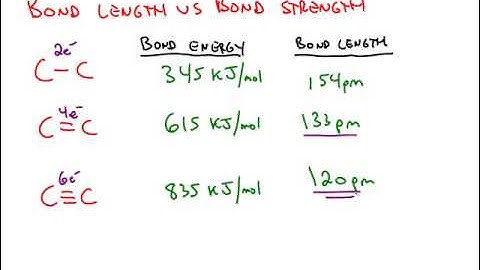 BOND LENGTH VS BOND STRENGTH
BOND ENERGY BOND LENGTH
2e⁻
C−C 345 KJ/mol 154pm
4e⁻
C=C 615 KJ/mol 133pm
6e⁻
C≡C 835 KJ/mol 120pm